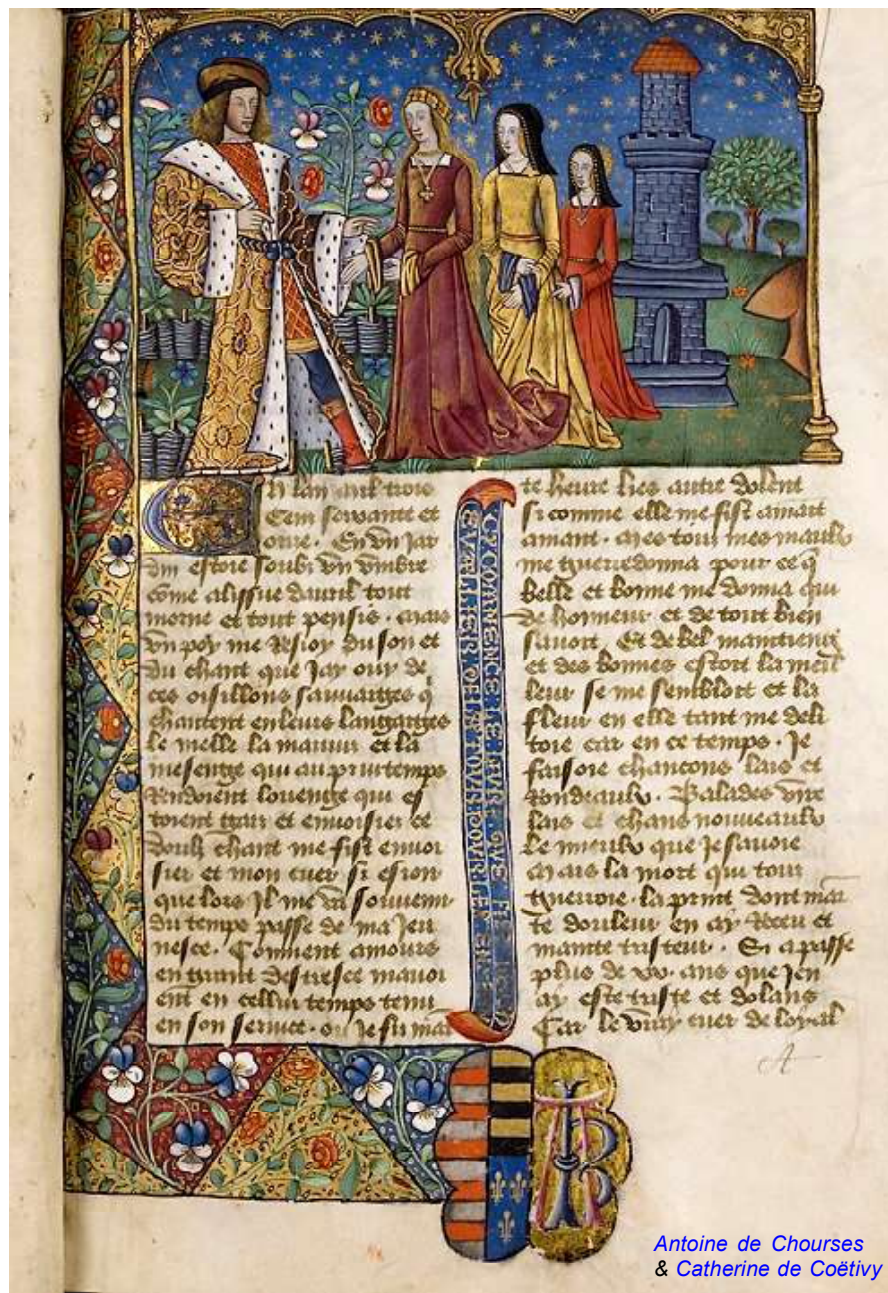 En lan mil trois
Cens soixante et
onze. En vn Jar
din estoie soubz vn vmbre
come alissue dauril tout
morne et tout pensis. mais
vn poy me resioy du son et
du chant que Jay ouy de
ces oisillons sauuaiges q̄
chantent en leurs langaiges
le melle la mauuis et la
mesenge qui au printemps
Rendoient louenge qui es
toient gais et enuoisiez ce
doulz chant me fist enuoi
sier et mon cuer si esioir
que lors Il me va souuenir
du temps passe de ma Jeu
nesce. Comment amours
en grant destresce mauoi
ent en cellui temps tenu
en son seruice. ou Je fu mai
CY COMMENCE LE LIVRE QVE FIST
DE LA TOVR POVR
te heure lies autre dolent
si comme elle me fist amait
amant. mes tous mes maulx
me guerredonna pour ce q̄
belle et bonne me donna qui
de honneur et de tout bien
sauoit. Et de bel maintieng
et des bonnes estoit la meil
leur se me sembloit et la
fleur en elle tant me deli
toie car en ce temps. Je
faisoie chancons lais et
Rondeaulx. Balades vire
lais et chans nouueaulx
Le mieulx que Je sauoie
mais la mort qui tout
guerroie. la print dont mai
te douleur en ay Receu et
mainte tristeur. Si a passe
plus de xx. ans que Jen
ay este triste et dolans
Car le vray cuer de loyal
A
Antoine de Chourses
& Catherine de Coëtivy